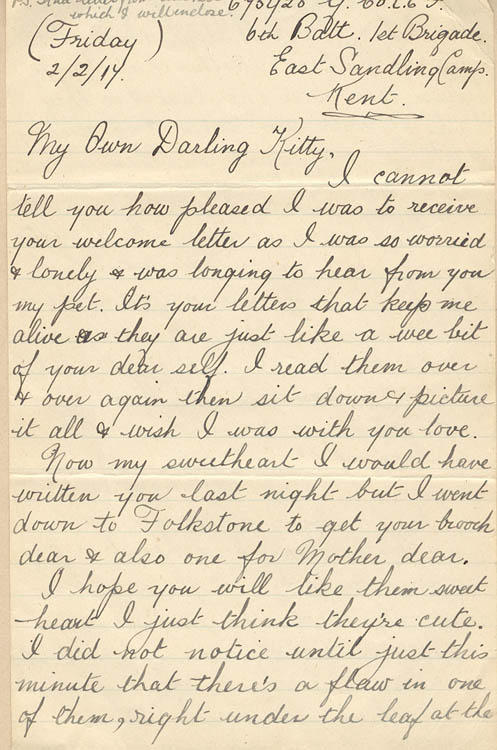 which I will inclose.
(Friday)
2/2/17.
6th Batt. 1st Brigade.
East Sandling Camp.
Kent.
My Own Darling Kitty,
I cannot
tell you how pleased I was to receive
your welcome letter as I was so worried
& lonely & was longing to hear from you
my pet. It's your letters that keep me
alive as they are just like a wee bit
of your dear self. I read them over
& over again then sit down & picture
it all & wish I was with you love.
Now my sweetheart I would have
written you last night but I went
down to Folkstone to get your brooch
dear & also one for Mother dear.
I hope you will like them sweet
heart I just think they're cute.
I did not notice until just this
minute that there's a flaw in one
of them, right under the leaf at the